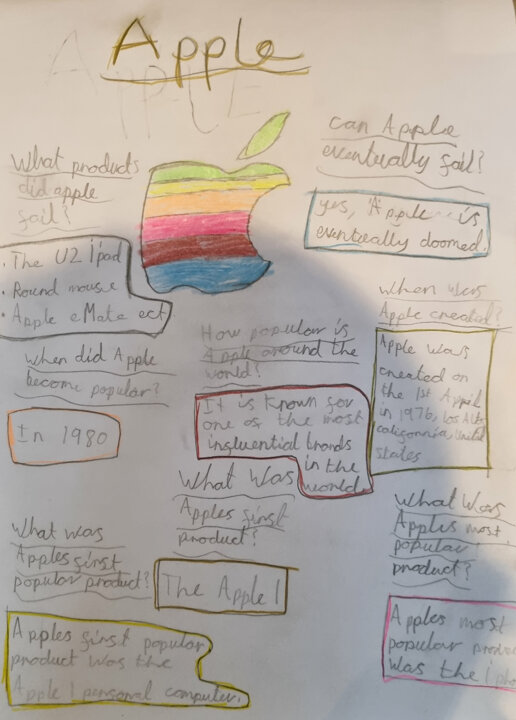 Apple
APPLE
What products
did apple
fail?
. The U2 ipad
. Round mouse
. Apple eMate ect
can Apple
eventually fail?
yes, Apple is
eventually doomed.
when was
Apple created?
Apple was
created on
the 1st April
in 1976, Los Altos
california, United
states
when did Apple
become popular?
In 1980
How popular is
Apple around the
world?
It is known for
one of the most
influential brands
in the
world.
What was
Apples first
product?
The Apple 1
What was
Apples first
popular product?
Apples first popular
product was the
Apple 1 personal computer.
What was
Apples most
popular
product?
Apples most
popular
was the